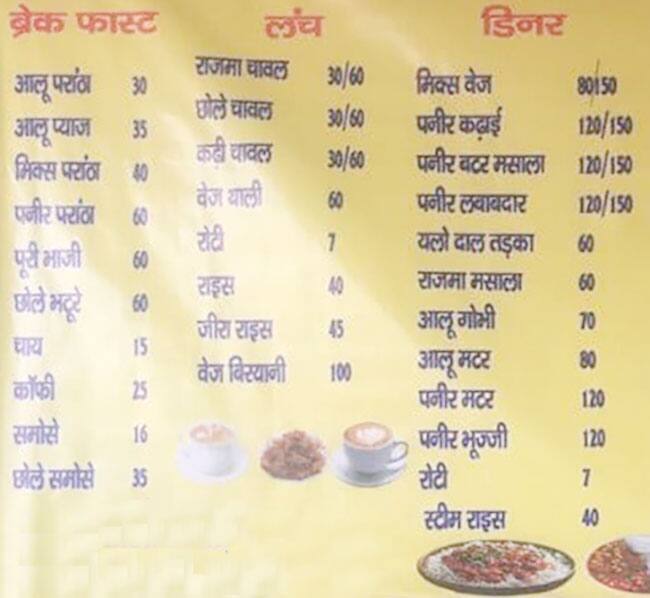 ब्रेक फास्ट
आलू परांठा 30
आलू प्याज 35
मिक्स परांठा 40
पनीर परांठा 60
पूरी भाजी 60
छोले भटूरे 60
चाय 15
कॉफी 25
समोसे 16
छोले समोसे 35
लंच
राजमा चावल 30/60
छोले चावल 30/60
कढ़ी चावल 30/60
वेज थाली 60
रोटी 7
राइस 40
जीरा राइस 45
वेज बिरयानी 100
डिनर
मिक्स वेज 80/150
पनीर कढ़ाई 120/150
पनीर बटर मसाला 120/150
पनीर लबाबदार 120/150
यलो दाल तड़का 60
राजमा मसाला 60
आलू गोभी 70
आलू मटर 80
पनीर मटर 120
पनीर भूज्जी 120
रोटी 7
स्टीम राइस 40